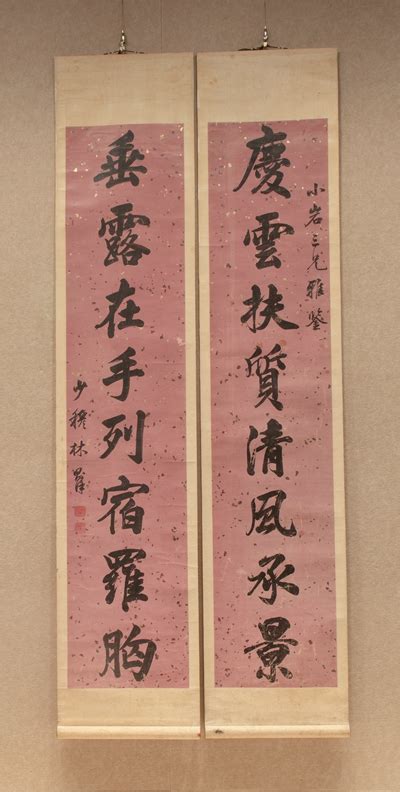 小岩三兄雅鑒
慶雲扶質清風承景
垂露在手列宿羅胸
少穆林